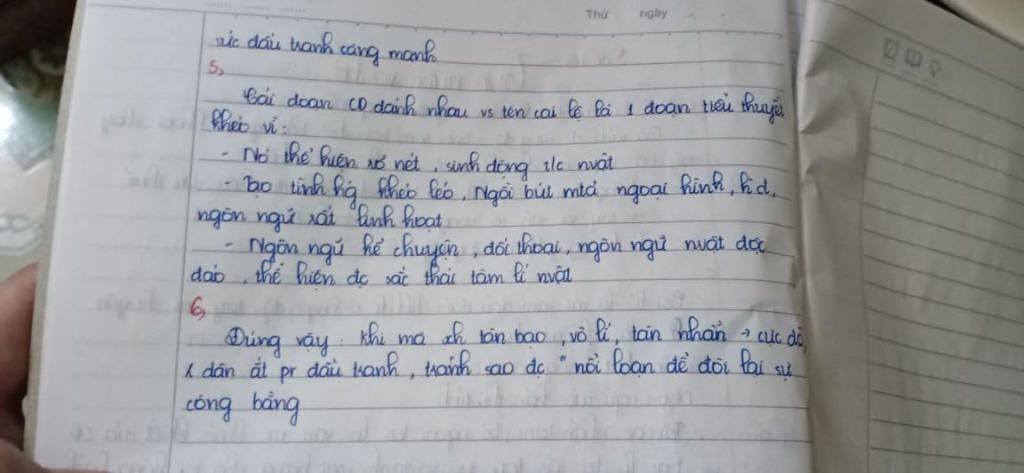 Thứ ngày
sức đấu tranh càng mạnh
5,
Cái đoạn CD đánh nhau vs tên cai lệ là 1 đoạn tiểu thuyết
khéo vì:
- Nó thể hiện rõ nét, sinh động t/c nvật
Tạo tình hg khéo léo, Ngòi bút mtả ngoại hình, hđ,
ngôn ngữ rất linh hoạt
- Ngôn ngữ kể chuyện, đối thoại, ngôn ngữ nvật độc
đáo, thể hiện đc sắc thái tâm lí nvật
6,
Đúng vậy. Khi mà xh tàn bạo, vô lí, tàn nhẫn → cực độ,
dân ắt pr đấu tranh, tránh sao đc "nổi loạn để đòi lại sự
công bằng